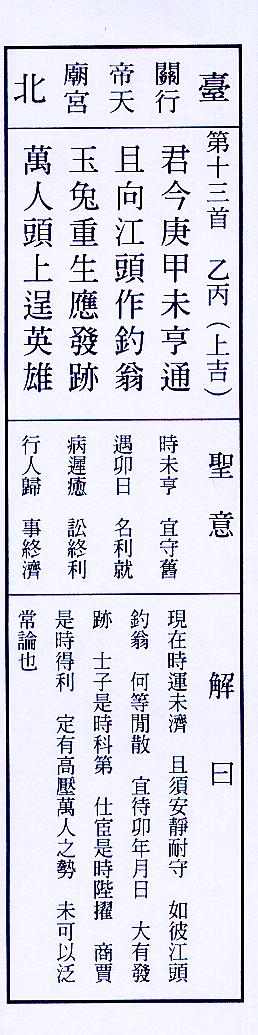 臺北
行天宮
關帝廟
第十三首　乙丙（上吉）
君今庚甲未亨通
且向江頭作釣翁
玉兔重生應發跡
萬人頭上逞英雄
聖意
時未亨　宜守舊
遇卯日　名利就
病遲癒　訟終利
行人歸　事終濟
解曰
現在時運未濟　且須安靜耐守　如彼江頭
釣翁　何等閒散　宜待卯年月日　大有發
跡　士子是時科第　仕宦是時陞擢　商賈
是時得利　定有高壓萬人之勢　未可以泛
常論也